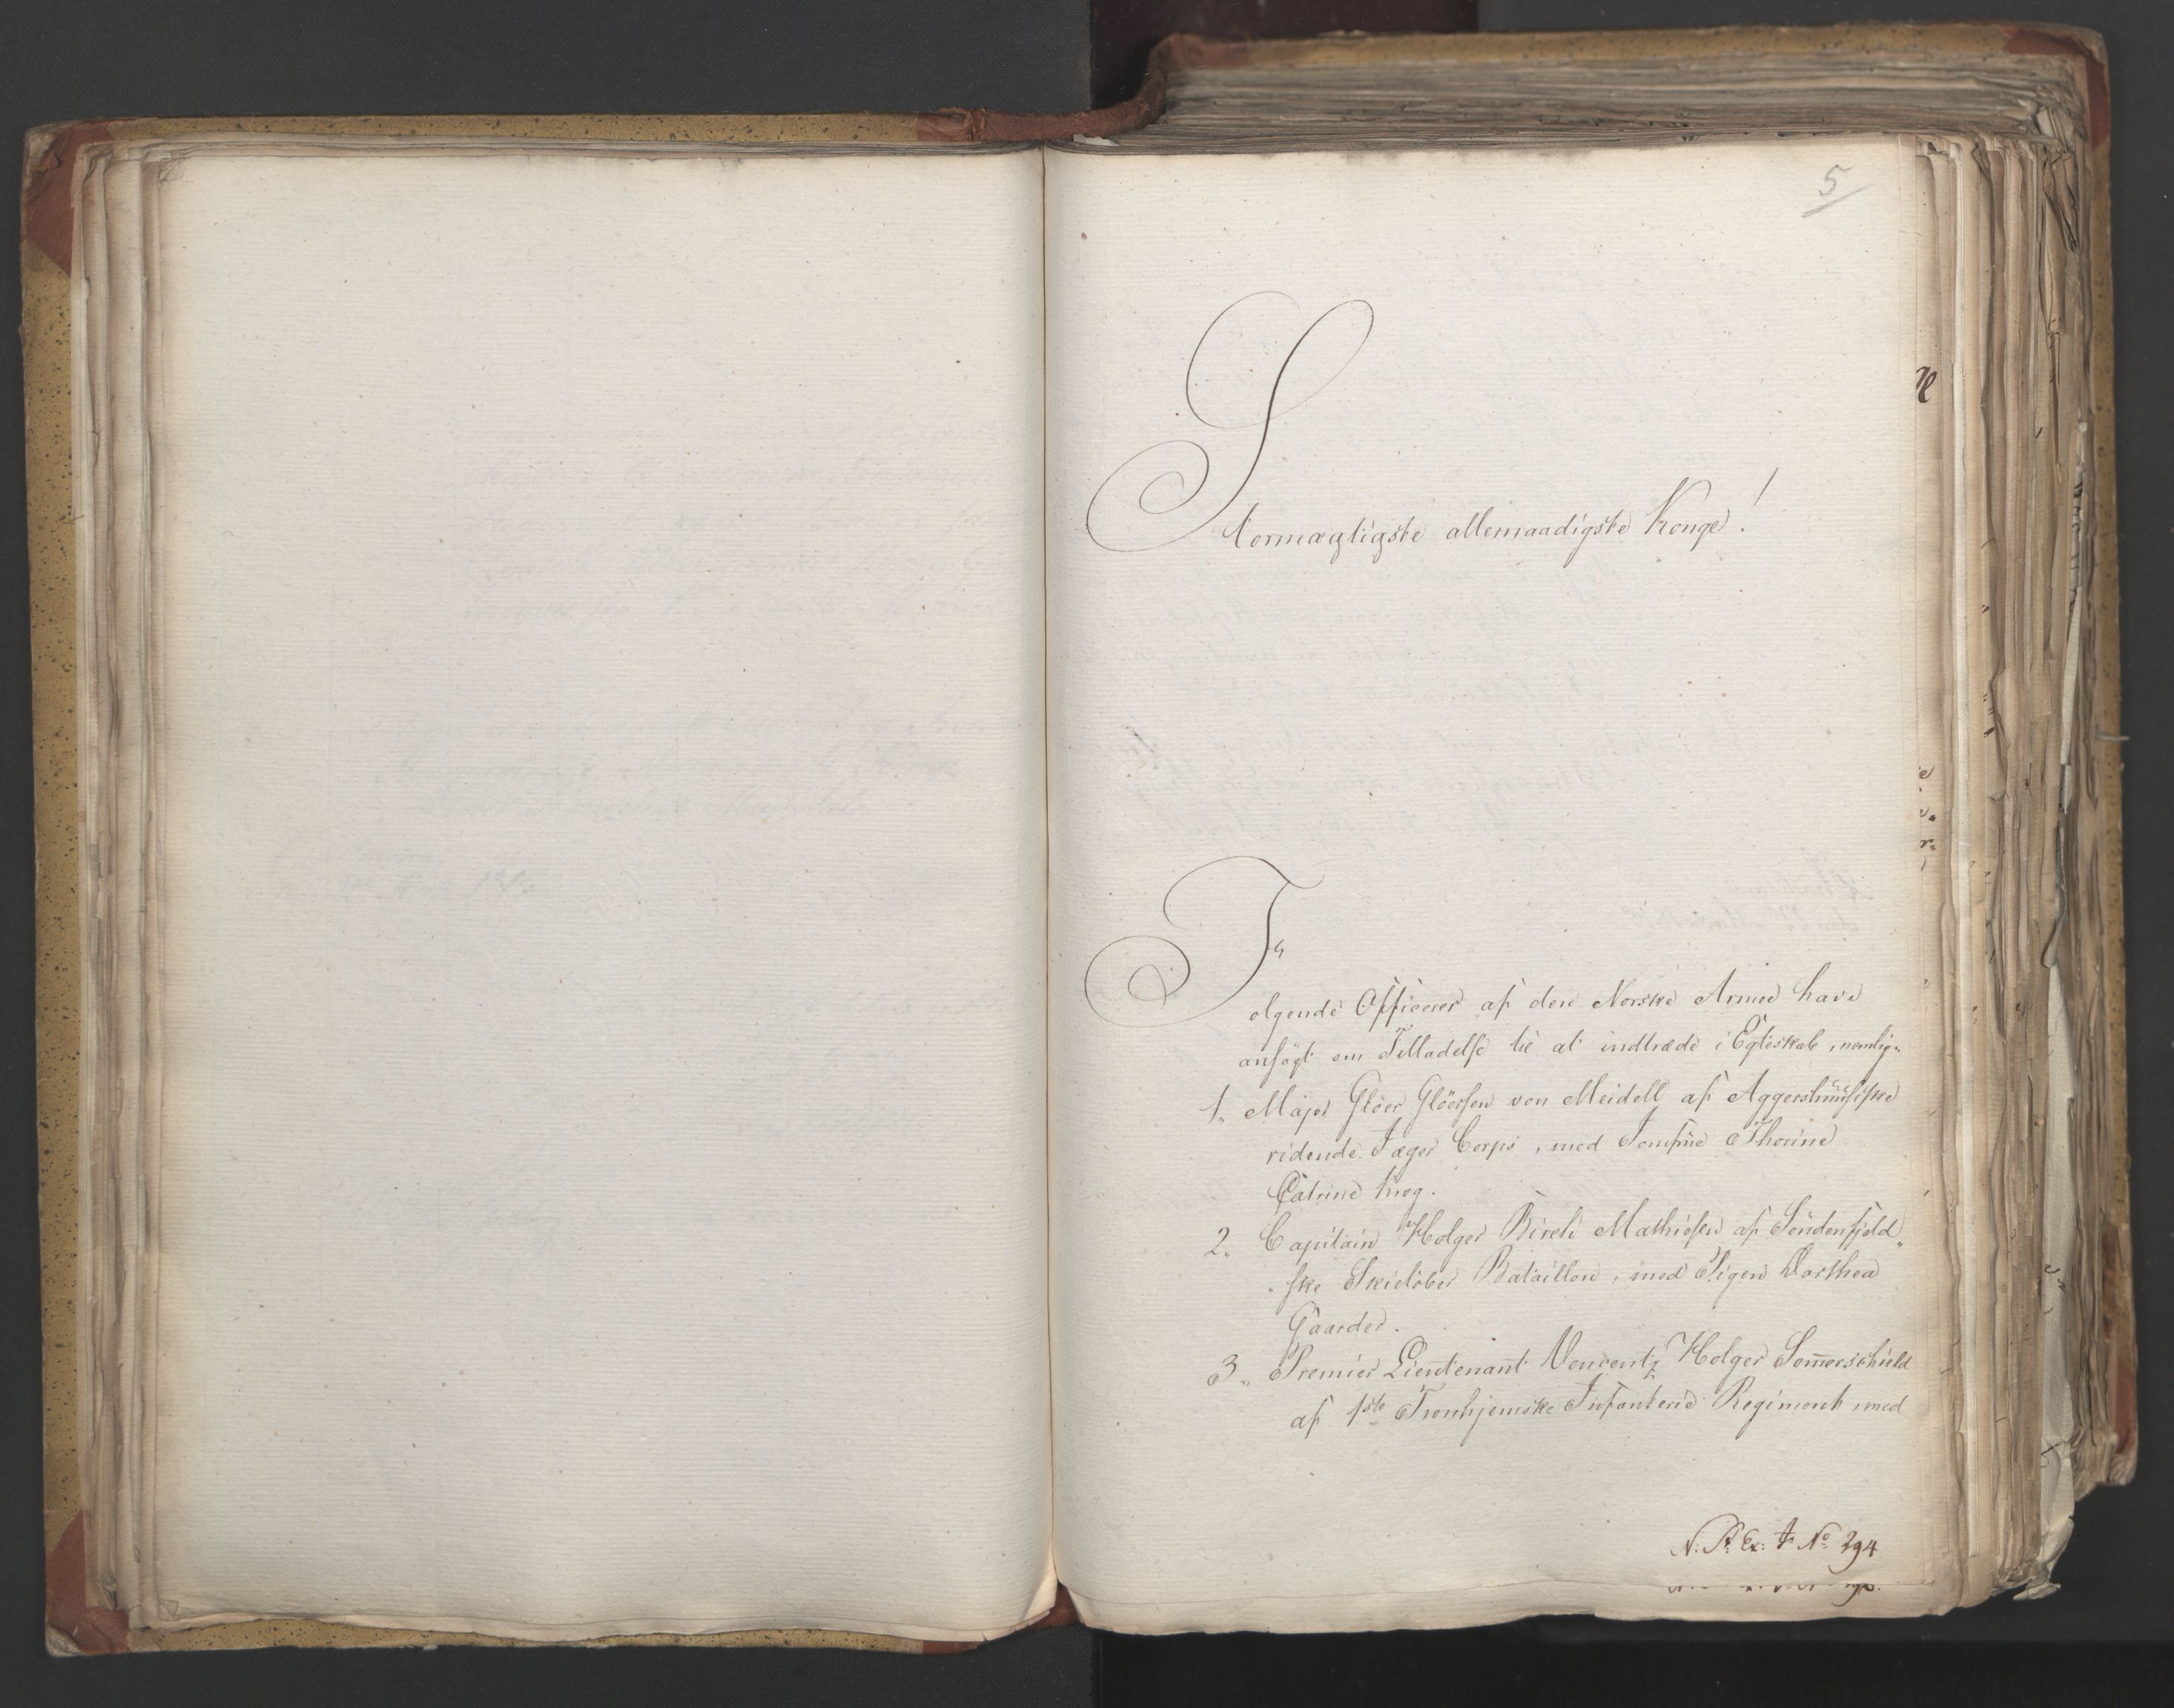 5
Stormægtigste allernaadigste Konge!
Følgende Officerer af den Norske Armee have
ansøgt om Tilladelse til at indtræde i Egteskab, nemlig:
1, Major Glöer Glöersen von Meidell af Aggershuusiske
ridende Jæger Corps, med Jomfrue Thorine
Catrine Krog.
2, Capitain Holger Birch Mathiesen af Søndenfjeld„
„ske Skieløber Bataillon, med Pigen Dorthea
Gaarder.
3„ Premier Lieutenant Vencentz Holger Somerschield
af 1ste Tronhjemske Infanterie Regiment, med
N: St: Ex: J: No 294